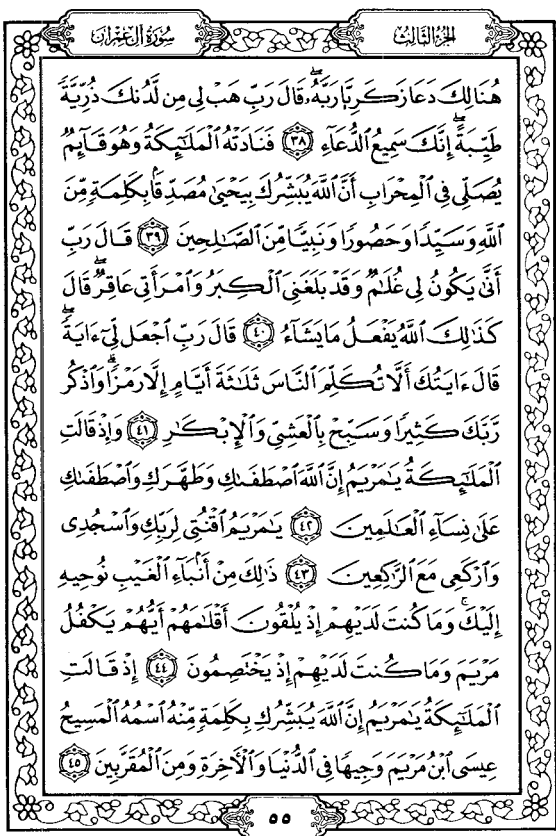 سُورَةُ آلِ عِمْرَان
الجُزْءُ الثَّالِثُ
هُنَالِكَ دَعَا زَكَرِيَّا رَبَّهُۥۖ قَالَ رَبِّ هَبْ لِى مِن لَّدُنكَ ذُرِّيَّةً
طَيِّبَةًۖ إِنَّكَ سَمِيعُ ٱلدُّعَآءِ ٣٨ فَنَادَتْهُ ٱلْمَلَٰٓئِكَةُ وَهُوَ قَآئِمٌ
يُصَلِّى فِى ٱلْمِحْرَابِ أَنَّ ٱللَّهَ يُبَشِّرُكَ بِيَحْيَىٰ مُصَدِّقًۢا بِكَلِمَةٍ مِّنَ
ٱللَّهِ وَسَيِّدًا وَحَصُورًا وَنَبِيًّا مِّنَ ٱلصَّٰلِحِينَ ٣٩ قَالَ رَبِّ
أَنَّىٰ يَكُونُ لِى غُلَٰمٌ وَقَدْ بَلَغَنِىَ ٱلْكِبَرُ وَٱمْرَأَتِى عَاقِرٌۖ قَالَ
كَذَٰلِكَ ٱللَّهُ يَفْعَلُ مَا يَشَآءُ ٤٠ قَالَ رَبِّ ٱجْعَل لِّىٓ ءَايَةًۖ
قَالَ ءَايَتُكَ أَلَّا تُكَلِّمَ ٱلنَّاسَ ثَلَٰثَةَ أَيَّامٍ إِلَّا رَمْزًاۗ وَٱذْكُر
رَّبَّكَ كَثِيرًا وَسَبِّحْ بِٱلْعَشِىِّ وَٱلْإِبْكَٰرِ ٤١ وَإِذْ قَالَتِ
ٱلْمَلَٰٓئِكَةُ يَٰمَرْيَمُ إِنَّ ٱللَّهَ ٱصْطَفَىٰكِ وَطَهَّرَكِ وَٱصْطَفَىٰكِ
عَلَىٰ نِسَآءِ ٱلْعَٰلَمِينَ ٤٢ يَٰمَرْيَمُ ٱقْنُتِى لِرَبِّكِ وَٱسْجُدِى
وَٱرْكَعِى مَعَ ٱلرَّٰكِعِينَ ٤٣ ذَٰلِكَ مِنْ أَنۢبَآءِ ٱلْغَيْبِ نُوحِيهِ
إِلَيْكَۚ وَمَا كُنتَ لَدَيْهِمْ إِذْ يُلْقُونَ أَقْلَٰمَهُمْ أَيُّهُمْ يَكْفُلُ
مَرْيَمَ وَمَا كُنتَ لَدَيْهِمْ إِذْ يَخْتَصِمُونَ ٤٤ إِذْ قَالَتِ
ٱلْمَلَٰٓئِكَةُ يَٰمَرْيَمُ إِنَّ ٱللَّهَ يُبَشِّرُكِ بِكَلِمَةٍ مِّنْهُ ٱسْمُهُ ٱلْمَسِيحُ
عِيسَى ٱبْنُ مَرْيَمَ وَجِيهًا فِى ٱلدُّنْيَا وَٱلْءَاخِرَةِ وَمِنَ ٱلْمُقَرَّبِينَ ٤٥
٥٥